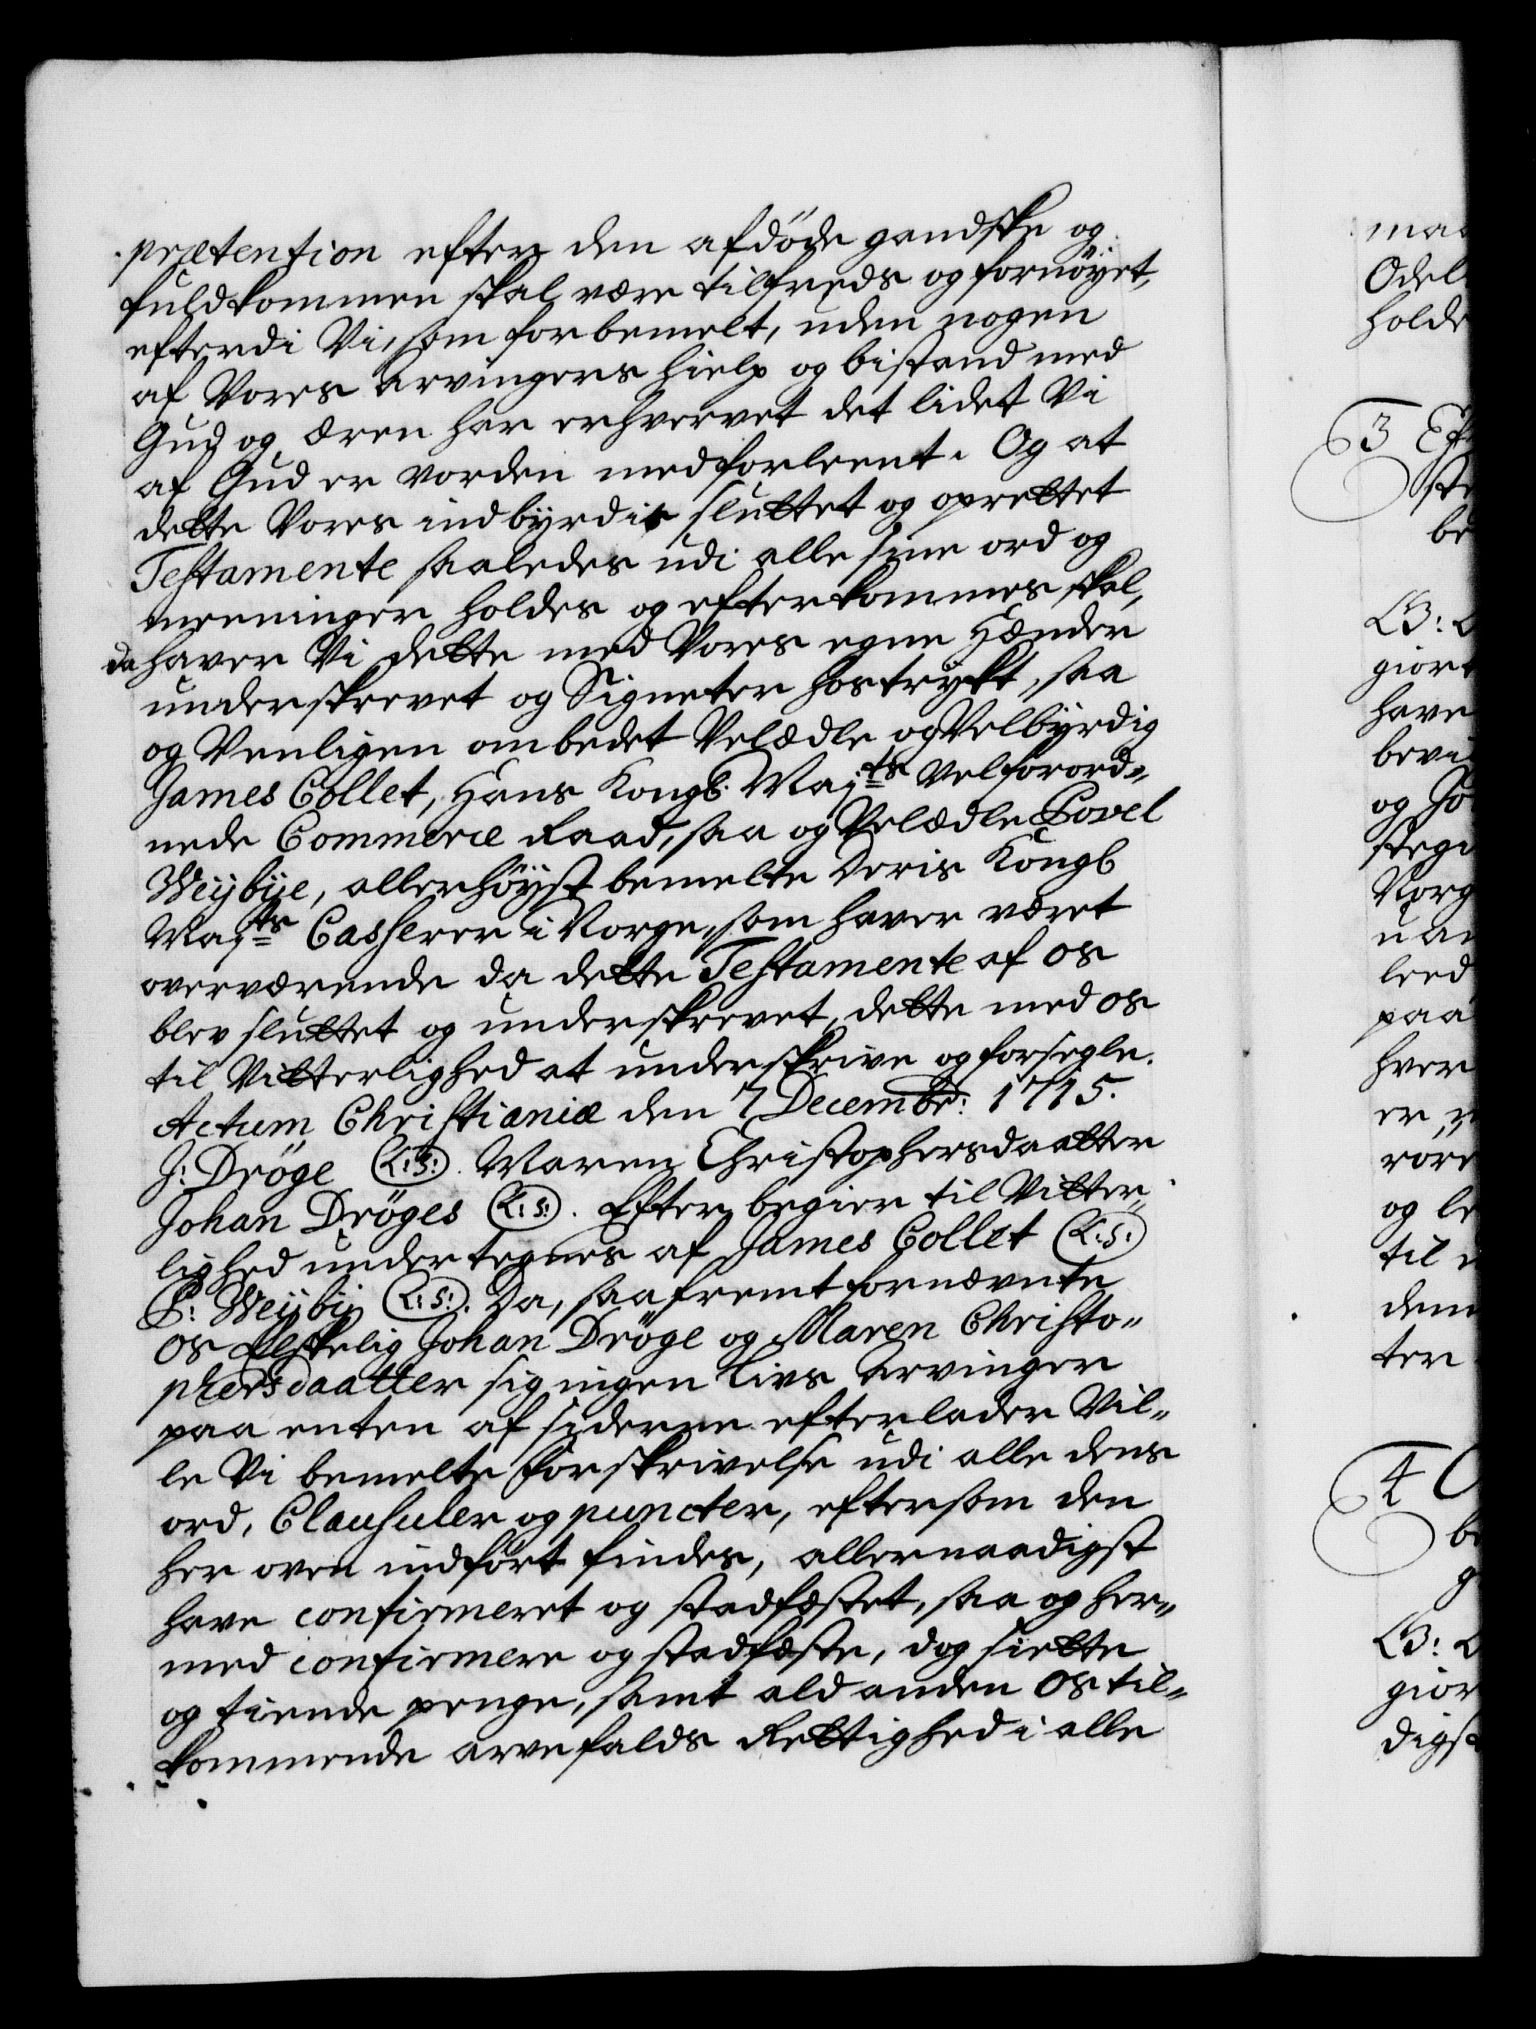 prætention efter den afdöde gandske og
fuldkommen skal være tilfreds og fornöyet,
efterdi Vi, som forbemelt, uden nogen
af Vores Arvingers hielp og bistand med
Gud og Æren har erhvervet det lidet Vi
af Gud er vorden medforleent. Og at
dette Vores indbyrdis sluttet og oprettet
Testamente saaledes udi alle sine ord og
meeninger holdes og efterkommes skal,
da haver Vi dette med Vores egne Hænder
underskrevet og Signeter hostrykt, saa
og Venligen ombedet Velædle og Velbyrdig
James Collet, Hans Kongl. Maj:ts Velforord„
nede Commerce Raad, saa og Velædle Povel
Weÿbÿe, allerhöyst bemelte Deris Kongl
Maj:ts Casserer i Norge, som haver været
overværende da dette Testamente af os
blev sluttet og underskrevet, dette med os
til Vitterlighed at underskrive og forsegle.
Actum Christianiæ den 7 Decembr: 1715.
J: Dröge L:S:. Maren Christophersdaatter
Johan Dröges L:S:. Efter begier til Vitter„
lighed undertegnes af James Collet L:S:
P: Weÿbÿ L:S:. Da, saafremt fornævnte
os Elskelig Johan Dröge og Maren Christo„
phersdaatter sig ingen Livs Arvinger
paa enten af siderne efterlader Vil„
le Vi bemelte forskrivelse udi alle dens
ord, Clausuler og puncter, eftersom den
her oven indfört findes, allernaadigst
have confirmeret og stadfæstet, saa og her„
med confirmere og stadfæste, dog siette
og tiende penge, samt ald anden Os til„
kommende arvefalds Rettighed i alle
maa
Odel
holde
3 Ef
ste
be
giort
have
bevi
og Jo
Norg
uan
leed
paa
hver
er
og le
til
dem
ter
4
be
g
gior
digst